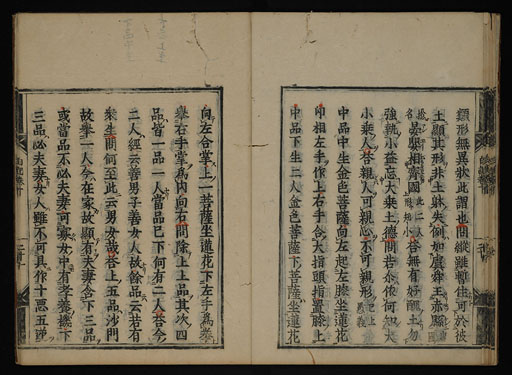 類形無異狀此謂也問縱雖暫住可於彼
土顯其形非土
強執小益忘大
小乘人答親人可親心不可親形
中品中坐金色菩薩向左起左膝坐蓮花
印相左手作上右手合大指頭指置膝上
中品下生二人金色菩薩下菩薩坐蓮花
向左合掌上一菩薩坐蓮花下左手爲拳
舉右手掌爲內向右問除上上品其次四
品皆一品一人當品已下何有二人答今
二人經云善男子善女人故餘品云若有
衆生問何至此云男女哉答上五品沙門
故舉一人今在家故顯有夫妻含下三品
或當品不必夫妻可寡女中有孝養機下
三品必夫妻女人雖不可具作十惡五逆